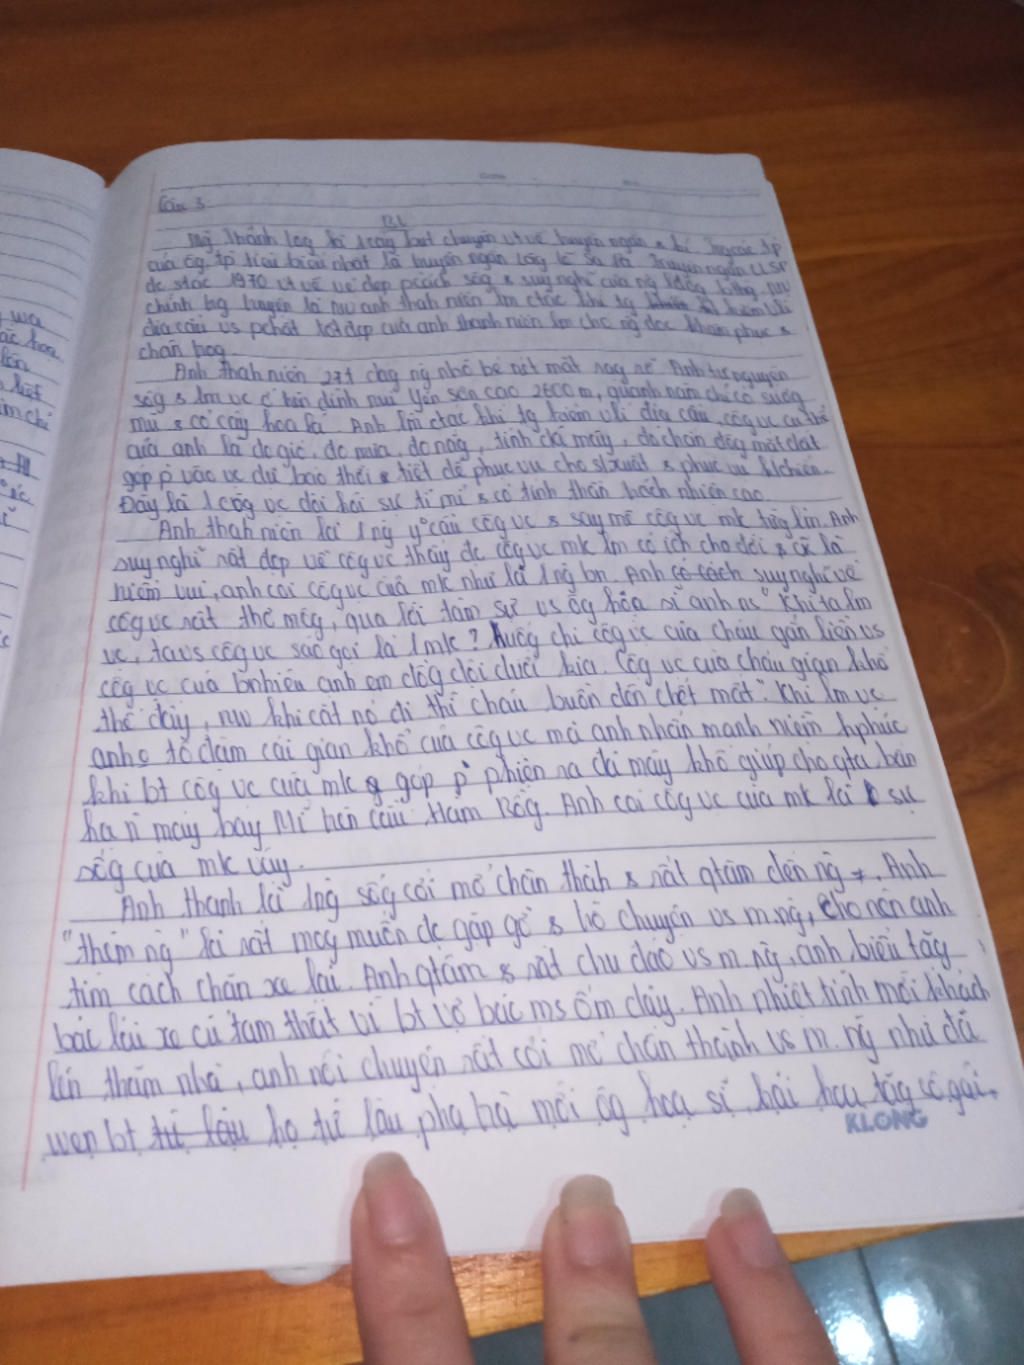 Câu 3
BL
Ng Thành Log là 1 cây bút chuyên vt về truyện ngắn & kí. Trog các tp
của ôg, tp tiêu biểu nhất là truyện ngắn Lặg lẽ Sa Pa. Truyện ngắn LLSP
đc stác 1970 vt về vẻ đẹp pcách sốg & suy nghĩ của ng lđộg bthg. NV
chính trg truyện là nv anh thah niên lm ctác khí tg kiêm vlí
địa cầu vs pchất tốt đẹp của anh thanh niên lm cho ng đọc khâm phục &
chân trọg.
Anh thah niên 27t dág ng nhỏ bé nét mặt rạg rỡ. Anh tự nguyện
sốg & lm vc ở trên đỉnh núi Yên Sơn cao 2600m, quanh năm chỉ có sươg
mù & cỏ cây hoa lá. Anh lm ctác khí tg kiêm vlí địa cầu, côg vc cụ thể
của anh là đo gió, đo mưa, đo nắg, tính đá mây, đo chấn độg mặt đất
góp p vào vc dự báo thời tiết để phục vụ cho slxuất & phục vụ klchiến.
Đây là 1 côg vc đòi hỏi sự tỉ mỉ & có tinh thần trách nhiệm cao.
Anh thah niên là 1 ng y° cầu côg vc & say mê côg vc mk từg lm. Anh
suy nghĩ rất đẹp về côg vc thấy đc côg vc mk lm có ích cho đời & cx là
niềm vui, anh coi côg vc của mk như là 1 ng bn. Anh có cách suy nghĩ về
côg vc rất thơ mộg, qua lời tâm sự vs ôg họa sĩ anh ns "Khi ta lm
vc, ta vs côg vc sao gọi là 1 mk? Huốg chi côg vc của cháu gắn liền vs
côg vc của bnhiêu anh em đồg đội dưới kia. Côg vc của cháu gian khổ
thế đấy, nw khi cất nó đi thì cháu buồn đến chết mất". Khi lm vc
anh o tô đậm cái gian khổ của côg vc mà anh nhấn mạnh niềm hphúc
khi bt côg vc của mk góp p phiện ra đá mây khô giúp cho qta bắn
hạ n máy bay Mĩ trên cầu Hàm Rồg. Anh coi côg vc của mk là sự
sốg của mk vậy.
Anh thanh là 1 ng sốg cởi mở chân thàh & rất qtâm đến ng ≠. Anh
"thèm ng" là rất mog muốn đc gặp gỡ & trò chuyện vs m.ng, cho nên anh
tìm cách chặn xe lại. Anh qtâm & rất chu đáo vs m.ng, anh biếu tặg
bác lái xe củ tam thất vì bt vợ bác ms ốm dậy. Anh nhiệt tình mời khách
lên thăm nhà, anh nói chuyện rất cởi mở chân thành vs m.ng như đã
wen bt từ lâu họ từ lâu pha trà mời ôg họa sĩ, hái hoa tặg cô gái.
KLONG